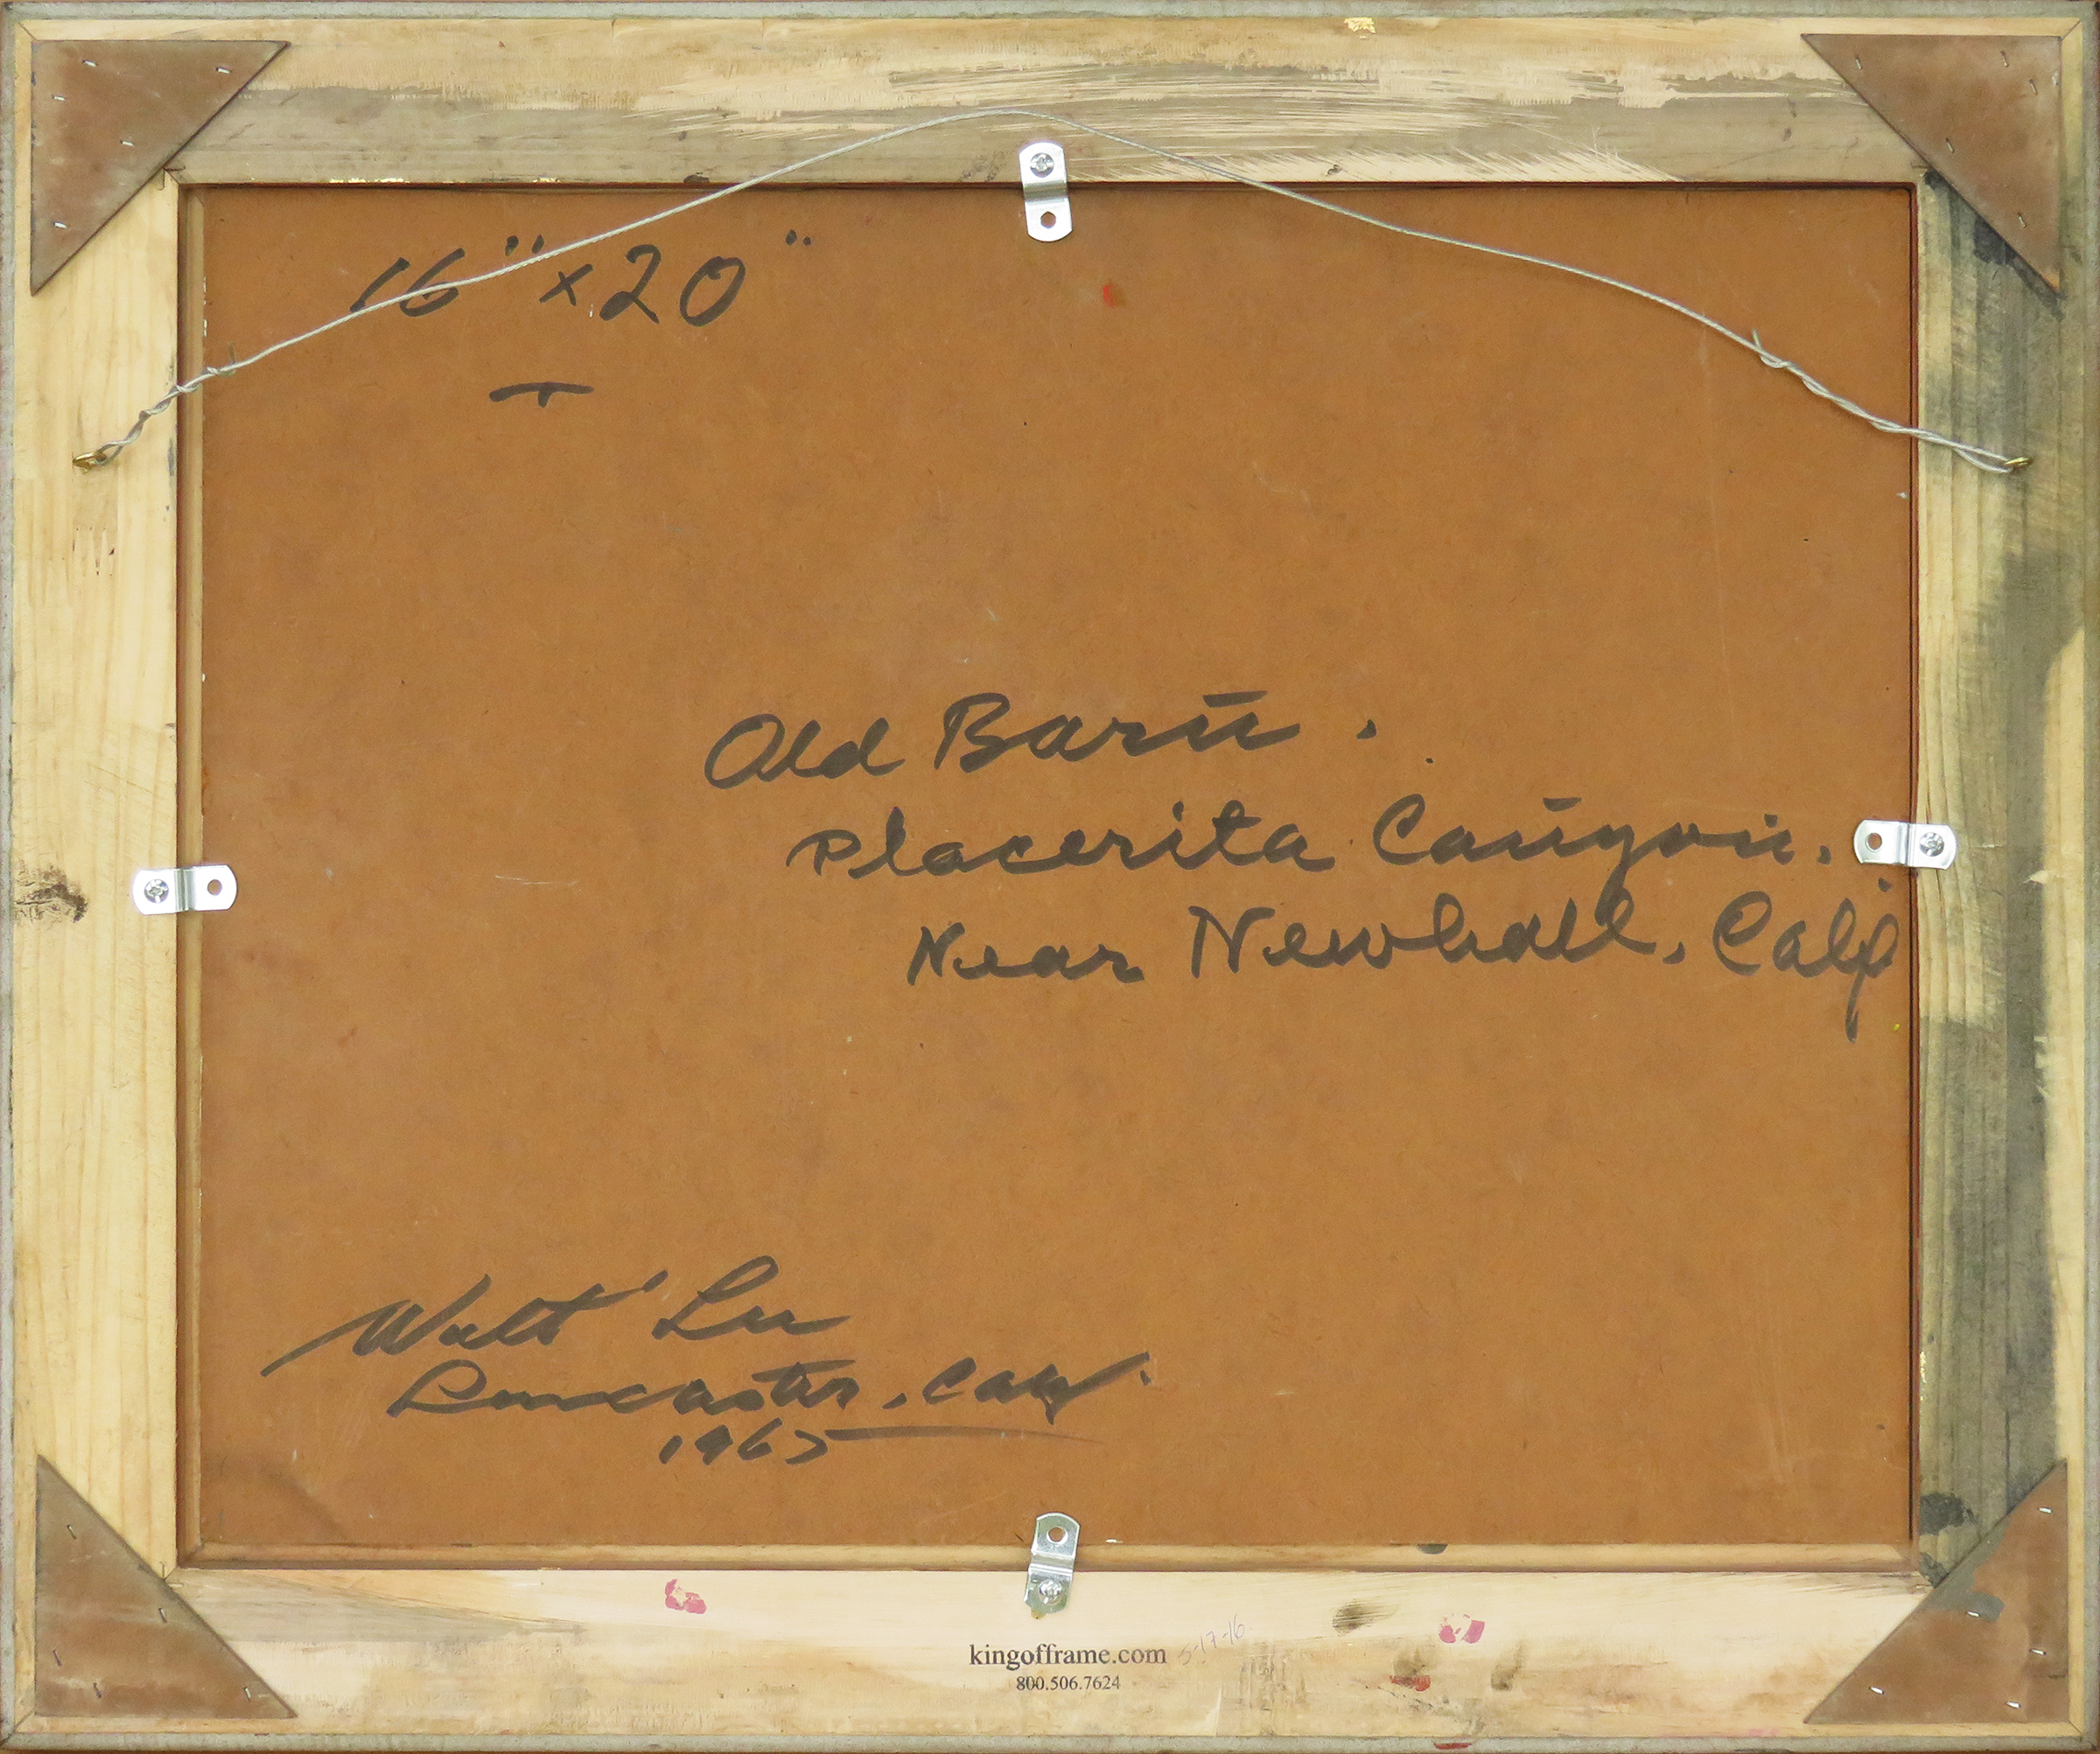 16" x 20"
Old Barn.
Placerita Canyon.
Near Newhall, Calif
Walt Lee
Lancaster, Calif.
1965
kingofframe.com 5-17-16
800.506.7624